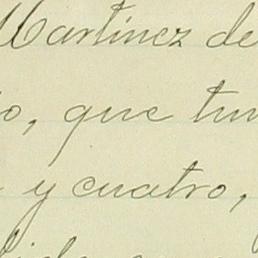 Martinez de
o, que tu
y cuatro,